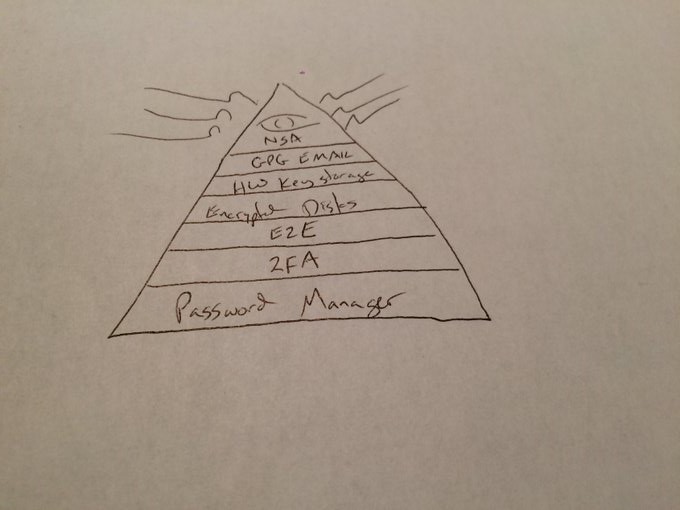 NSA
GPG EMAIL
HW Key storage
Encrypted Disks
E2E
2FA
Password Manager